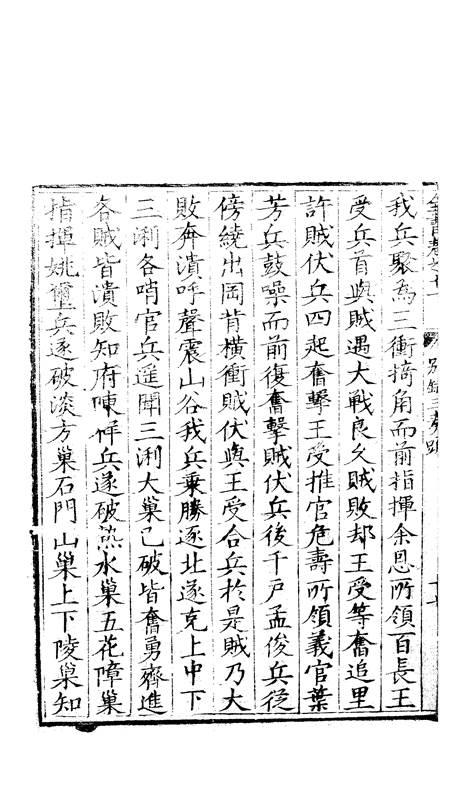 我兵聚為三衝掎角而前指揮余恩所領百長王
受兵首與賊遇大戰良久賊敗却王受等奮追里
許賊伏兵四起奮擊王受推官危壽所領義官葉
芳兵鼓噪而前復奮擊賊伏兵後千戶孟俊兵從
傍繞出岡背橫衝賊伏與王受合兵於是賊乃大
敗奔潰呼聲震山谷我兵乘勝逐北遂克上中下
三浰各哨官兵遥聞三浰大巢已破皆奮勇齊進
各賊皆潰敗知府陳祥兵遂破熱水巢五花障巢
指揮姚璽兵遂破淡方巢石門山巢上下陵巢知